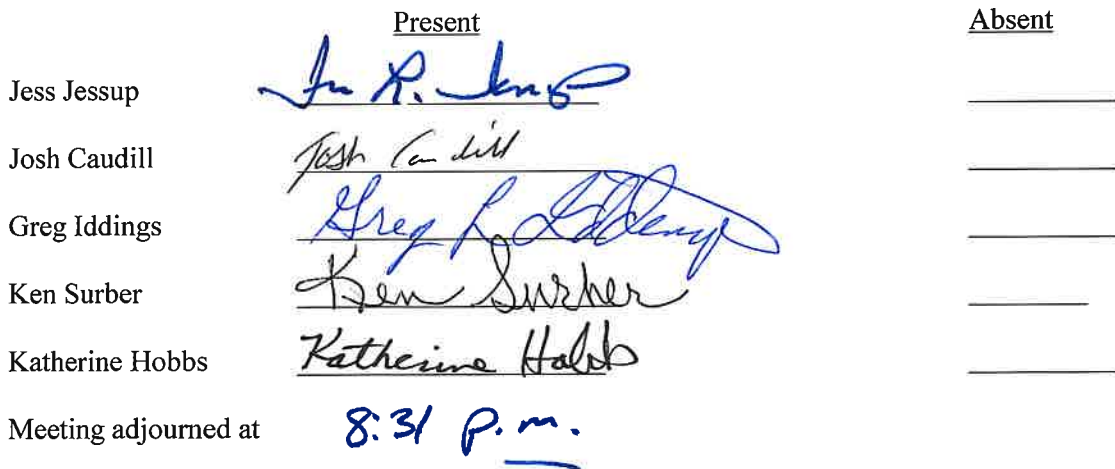 Present Absent
Jess Jessup
Josh Caudill Josh Caudill
Greg Iddings Greg L Iddings
Ken Surber Ken Surber
Katherine Hobbs Katherine Hobbs
Meeting adjourned at 8:31 p.m.